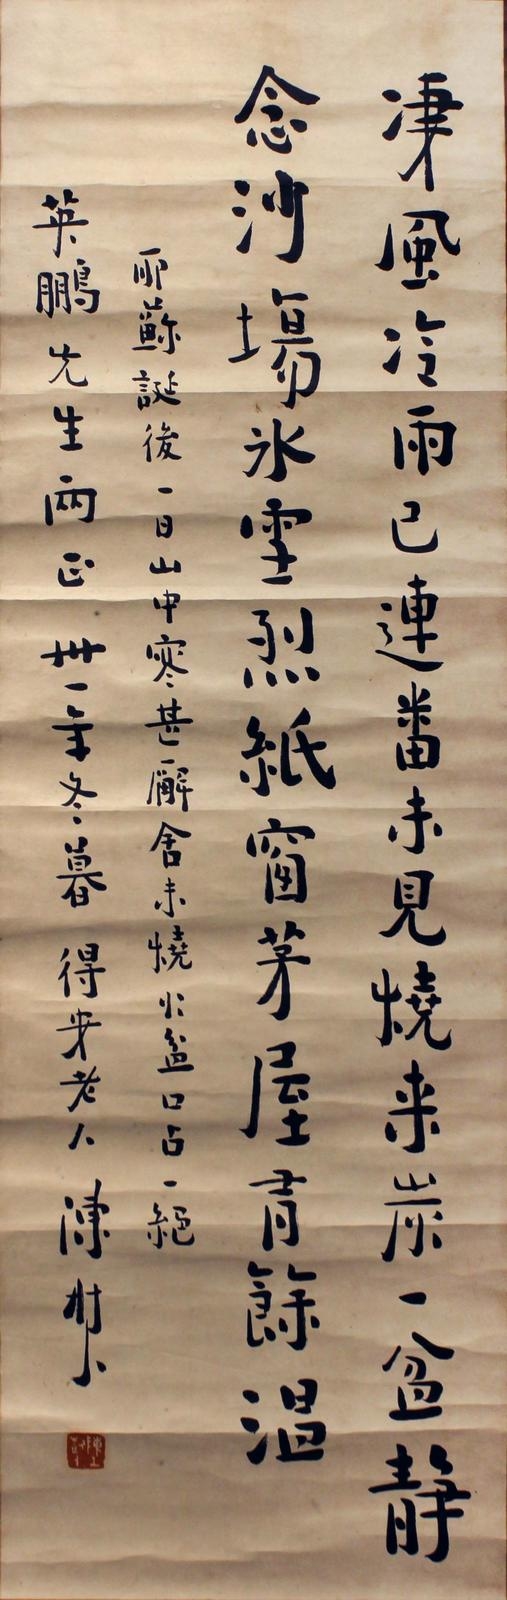 凄風冷雨已連番未見燒来炭一盆靜
念沙場氷雪烈紙窗茅屋有餘温
耶蘇誕後一日山中寒甚廨舍未燒火盆口占一絕
英鵬先生兩正 卅一年冬暮 得安老人 陳樹人